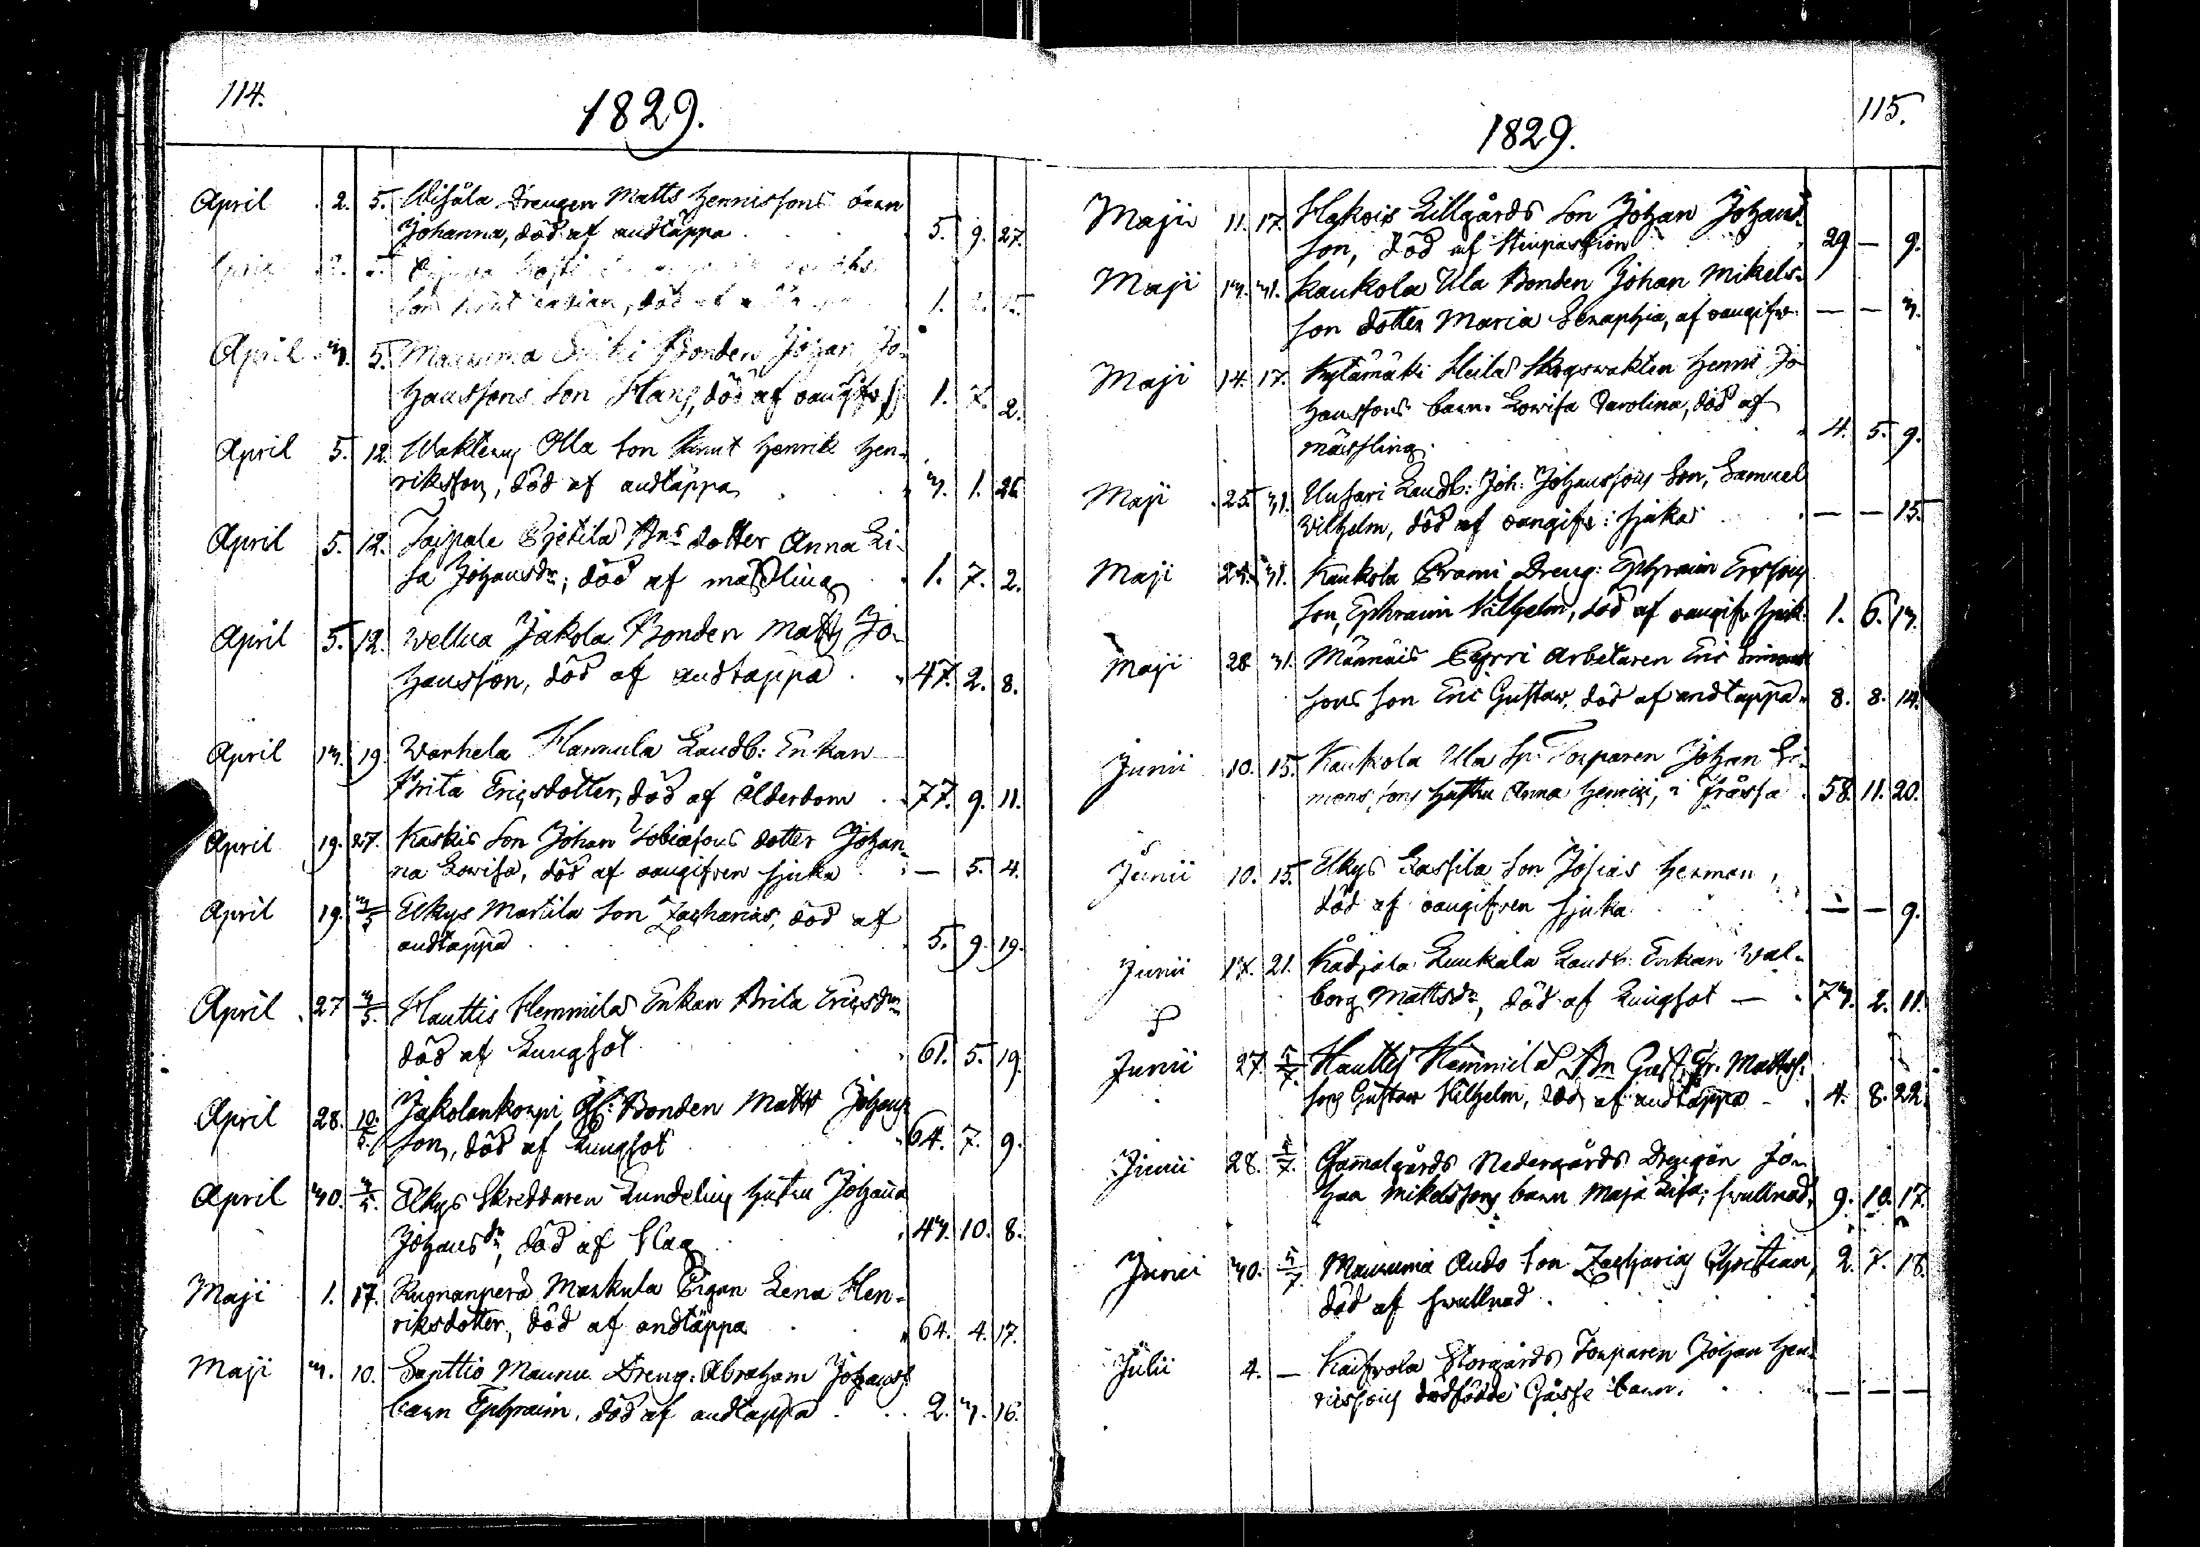 114.
1829.
April 2. 5. Wisåla Drengen Matts Hennissons barn
Johanna, död af andtäppa 5. 9. 27.
April 2. 5.
son, död af 1.
April 3. 5. Maunuma Bonden Johan Jo-
hanssons son Hans, död af oangifv. 1. 7. 2.
April 5. 12. Olla son Knut Henrik Hen-
riksson, död af andtäppa 3. 1. 26.
April 5. 12. Taipale Pietilä Bns dotter Anna Li-
sa Johansdr, död af mässling 1. 7. 2.
April 5. 12. Wellua Jakola Bonden Matts Jo-
hansson, död af andtäppa 47. 2. 8.
April 13. 19. Warhela Hannula Landb: Enkan
Brita Ericsdotter, död af Ålderdom 77. 9. 11.
April 19. 27. Kaskis son Johan Tobiasons dotter Johan-
na Lovisa, död af oangifven sjuka — 5. 4.
April 19. 3/5 Elkys Mattila son Zacharias, död af
andtäppa 5. 9. 19.
April 27 3/5. Hauttis Hemmilä Enkan Brita Ericsdr
död af Lungsot 61. 5. 19.
April 28. 10/5. Jakolankorpi Gl: Bonden Matts Johans
son, död af Lungsot 64. 7. 9.
April 30. 3/5. Elkys Skreddaren Lundelius hustru Johanna
Johansdr, död af Slag 43. 10. 8.
Maji 1. 17. Ruonanperä Markula Pigan Lena Hen-
riksdotter, död af andtäppa 64. 4. 17.
Maji 3. 10. Santtio Maunu Dreng: Abraham Johanss
barn Ephraim, död af andtäppa 2. 3. 16.
115.
1829.
Maji 11. 17. Hakois Lillgårds son Johan Johans-
son, död af 29 — 9.
Maji 13. 31. Kaukola Ula Bonden Johan Mikels-
son dotter Maria Seraphia, af oangifv. — — 3.
Maji 14. 17. Kytämäki Heilä Skogswakten Henric Jo
hanssons barn Lovisa Carolina, död af
mässling. 4. 5. 9.
Maji 25. 31. Uusari Landb: Joh: Johanssons Son, Samuel
Wilhelm, död af oangifv: sjuka — — 15.
Maji 31. Kaukola Prami Dreng: Ephraim Erssons
son, Ephraim Vilhelm, död af oangifv sjuk. 1. 6. 13.
Maji 28 31. Männäis Pyrri Arbetaren Eric Simons
sons son Eric Gustav, död af andtappa 8. 8. 14.
Junii 10. 15. Kaukola Ulla Sp: Torparen Johan Si-
mons sons hustru Anna Henrici, i Frässa 58. 11. 20.
Junii 10. 15. Elkys Lassila son Josias Herman,
död af oangifven sjuka — — 9.
Junii 17. 21. Kådjala Luukala Landb: Enkan Wal-
borg Mattsdr, död af Lungsot — 73. 2. 11.
Junii 27. 5/7. Hauttis Hemmilä Bn Gust. Fr. Matts-
sons Gustav Vilhelm, död af andtäppa 4. 8. 22.
Junii 28. 5/7. Gammalgårds Nedergårds Drengen Jo-
han Mikelssons barn Maja Lisa, svullnad. 9. 10. 17.
Junii 30. 5/7. Maunuma Ando son Zacharias Christian, 2. 7. 18.
död af svullnad.
Julii 4. — Kaifvola Storgårds Torparen Johan Hen-
ricssons dödfödde Gosse barn. — — —